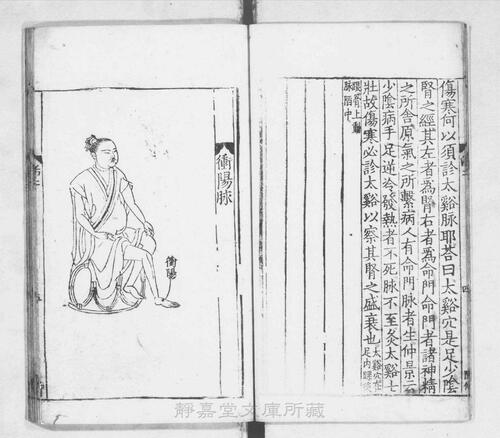 傷寒何以須診太谿脉耶荅曰太谿穴是足少陰
腎之經其左者為腎右者為命門命門者諸神精
之所舎原氣之所繫病人有命門脉者生仲景云
少陰病手足逆冷發熱者不死脉不至灸太谿七
壯故傷寒必診太谿以察其腎之盛衰也太谿穴在
足内踝後
跟骨上動
脉陷中
衝陽脉
衝陽
靜嘉堂文庫所藏